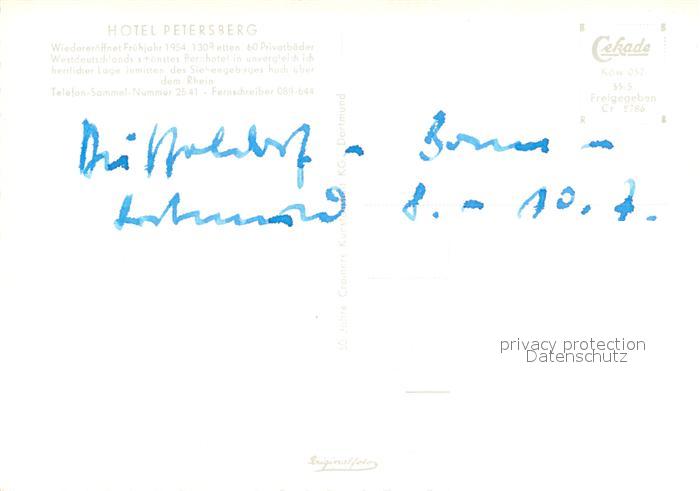 HOTEL PETERSBERG
Wiedereröffnet Frühjahr 1954. 130 Betten. 60 Privatbäder
Westdeutschlands schönstes Berghotel in unvergleichlich
herrlicher Lage inmitten des Siebengebirges hoch über
dem Rhein
Telefon-Sammel-Nummer 2541 - Fernschreiber 089-644
Cekade
Köw 057
Freigegeben
Cr 5786
Düsseldorf - Bonn -
Dortmund 8. - 10. 7.
50 Jahre Cramers Kunst KG., Dortmund
privacy protection
Datenschutz
Originalfoto